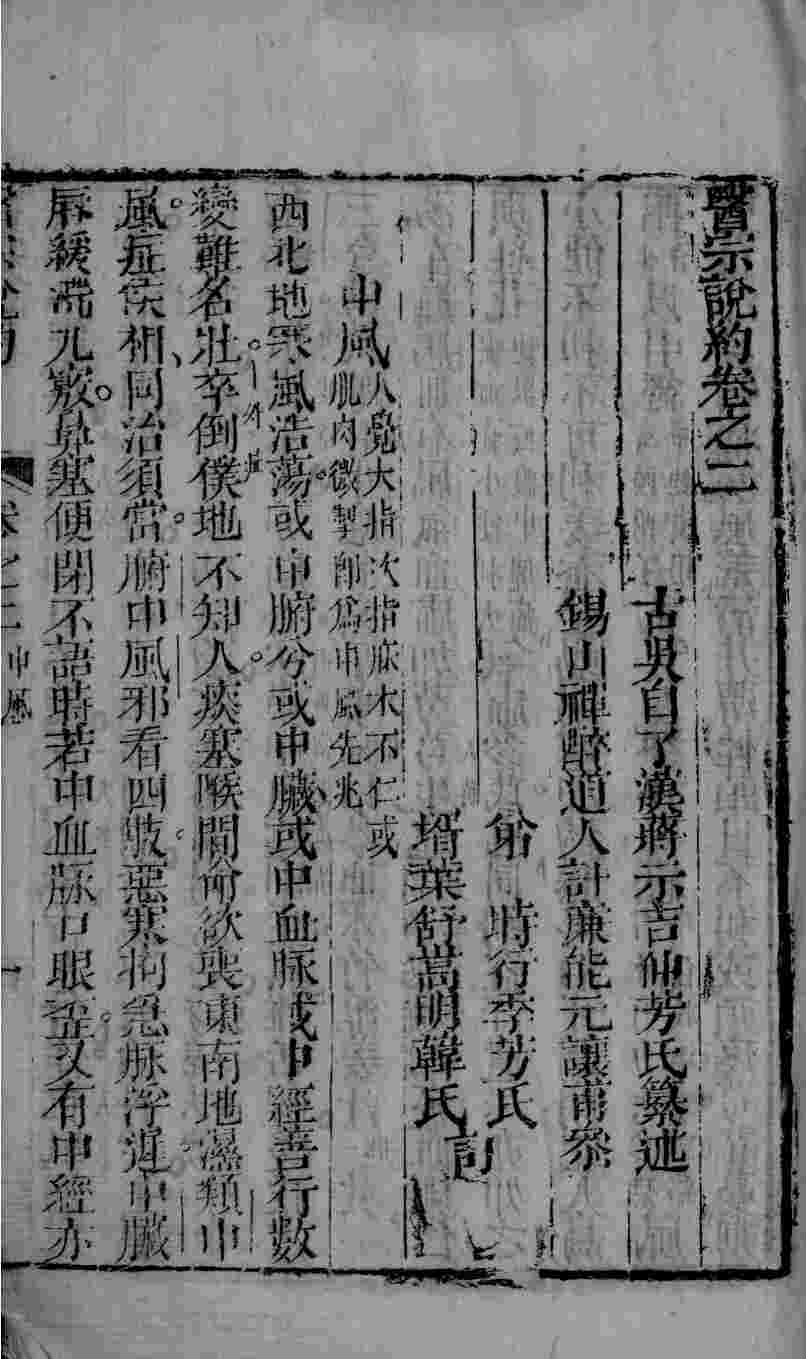 醫宗說約卷之二
古吳自了漢蔣示吉仲芳氏纂述
錫山禪醉道人計廉能元讓甫叅
弟 時行季芳氏
壻葉舒嵩明韓氏 訂
中風
人覺大指次指麻木不仁或
肌肉微掣卽爲中風先兆
西北地寒風浩蕩或中腑兮或中臟或中血脉或中經善行數
變難名壯卒倒僕地不知人痰塞喉間命欲喪東南地濕類中
風症候相同治須當腑中風邪看四肢惡寒拘急脉浮遲中臟
唇緩滯九竅鼻塞便閉不語時若中血脉口眼歪又有中經亦
卷之二 中風 一